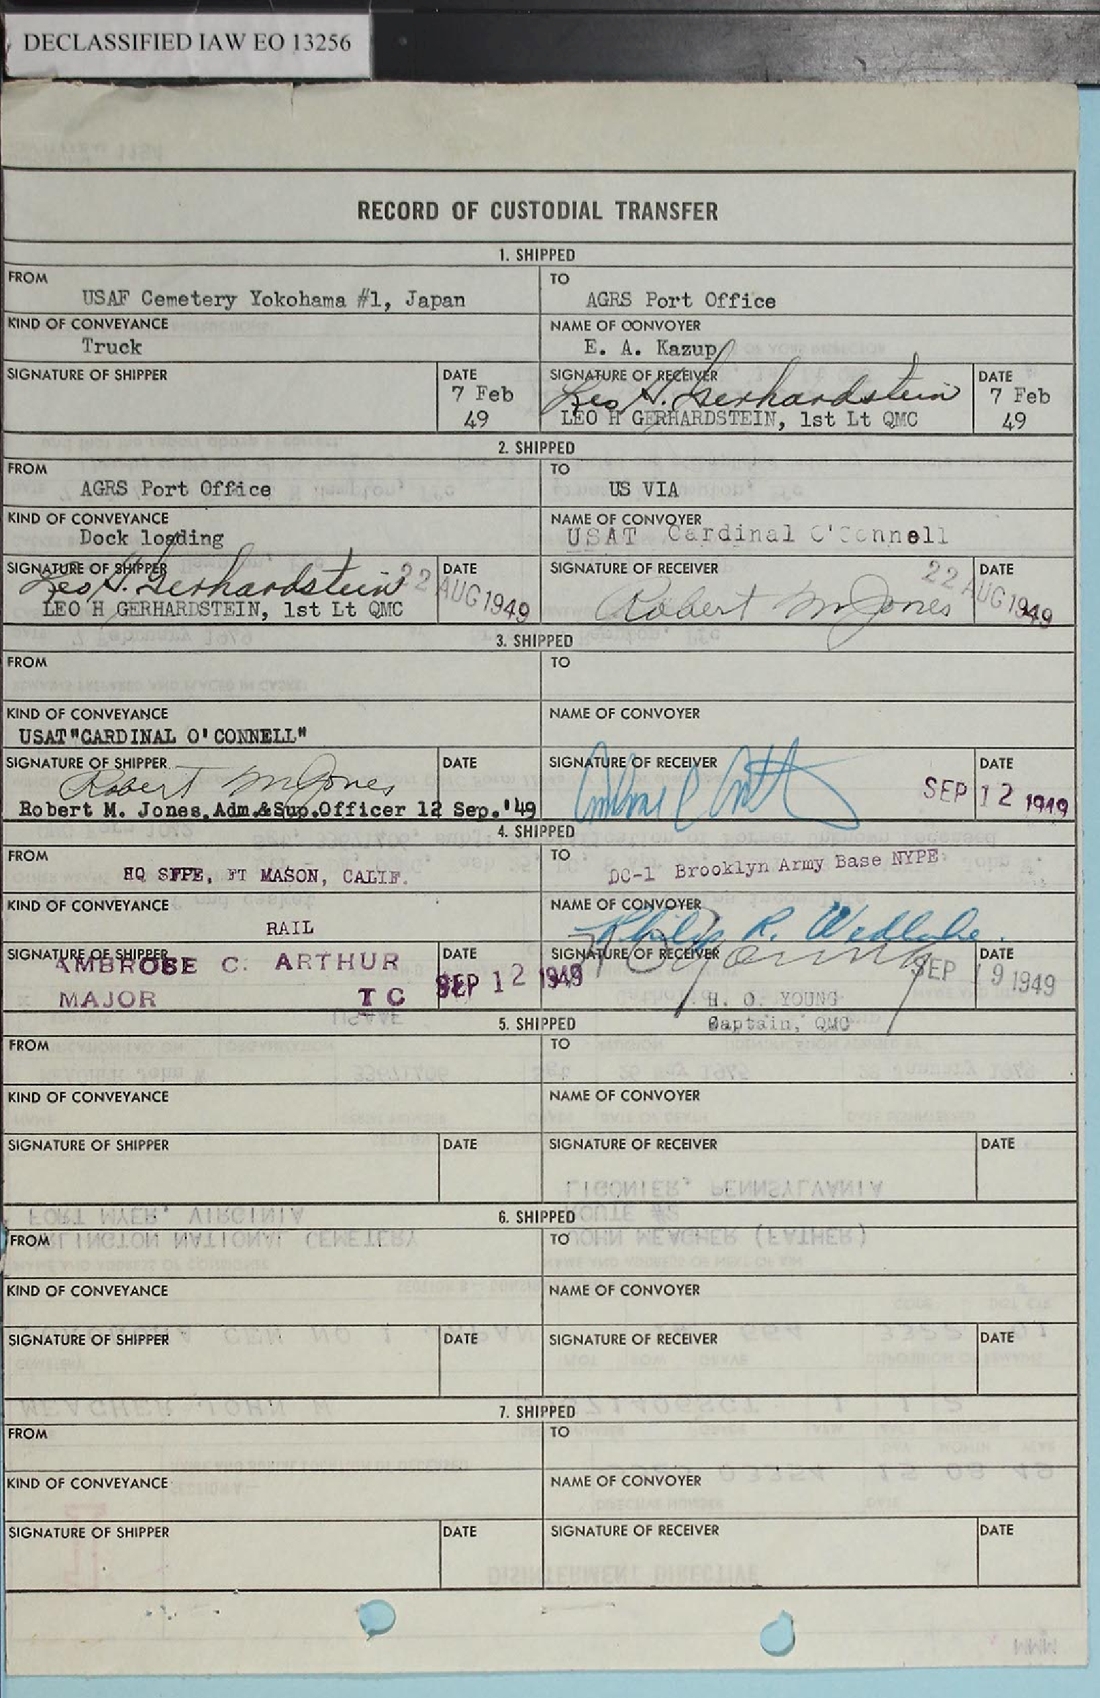 DECLASSIFIED IAW EO 13256
RECORD OF CUSTODIAL TRANSFER
1. SHIPPED
FROM
USAF Cemetery Yokohama #1, Japan
TO
AGRS Port Office
KIND OF CONVEYANCE
Truck
NAME OF CONVOYER
E. A. Kazup
SIGNATURE OF SHIPPER
DATE
7 Feb
49
SIGNATURE OF RECEIVER
Leo H. Gerhardstein
LEO H GERHARDSTEIN, 1st Lt QMC
DATE
7 Feb
49
2. SHIPPED
FROM
AGRS Port Office
TO
US VIA
KIND OF CONVEYANCE
Dock loading
NAME OF CONVOYER
USAT Cardinal O'Connell
SIGNATURE OF SHIPPER
Leo H. Gerhardstein
LEO H GERHARDSTEIN, 1st Lt QMC
DATE
22 AUG 1949
SIGNATURE OF RECEIVER
Robert M Jones
DATE
22 AUG 1949
3. SHIPPED
FROM
TO
KIND OF CONVEYANCE
USAT"CARDINAL O'CONNELL"
NAME OF CONVOYER
SIGNATURE OF SHIPPER
Robert M Jones
Robert M. Jones,Adm.&Sup.Officer 12 Sep.'49
DATE
SIGNATURE OF RECEIVER
DATE
SEP 12 1949
4. SHIPPED
FROM
HQ SFPE, FT MASON, CALIF.
TO
DC-1 Brooklyn Army Base NYPE
KIND OF CONVEYANCE
RAIL
NAME OF CONVOYER
Philip R.
SIGNATURE OF SHIPPER
AMBROSE C. ARTHUR
MAJOR TC
DATE
SEP 12 1949
SIGNATURE OF RECEIVER
H. O. YOUNG
Captain, QMC
DATE
SEP 19 1949
5. SHIPPED
FROM
TO
KIND OF CONVEYANCE
NAME OF CONVOYER
SIGNATURE OF SHIPPER
DATE
SIGNATURE OF RECEIVER
DATE
6. SHIPPED
FROM
TO
KIND OF CONVEYANCE
NAME OF CONVOYER
SIGNATURE OF SHIPPER
DATE
SIGNATURE OF RECEIVER
DATE
7. SHIPPED
FROM
TO
KIND OF CONVEYANCE
NAME OF CONVOYER
SIGNATURE OF SHIPPER
DATE
SIGNATURE OF RECEIVER
DATE